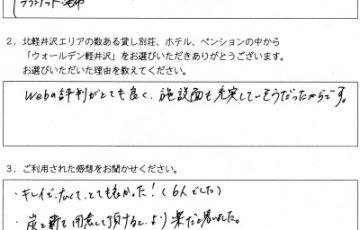 2．北軽井沢エリアの数ある貸し別荘、ホテル、ペンションの中から
「ウォールデン軽井沢」をお選びいただきありがとうございます。
お選びいただいた理由を教えてください。
Webの評判がとても良く、施設面も充実していそうだったからです。
3．ご利用された感想をお聞かせください。
・キレイで、広くて、とても良かった！（6人でした）
・炭と薪を用意して頂けると、より楽だと思いました。